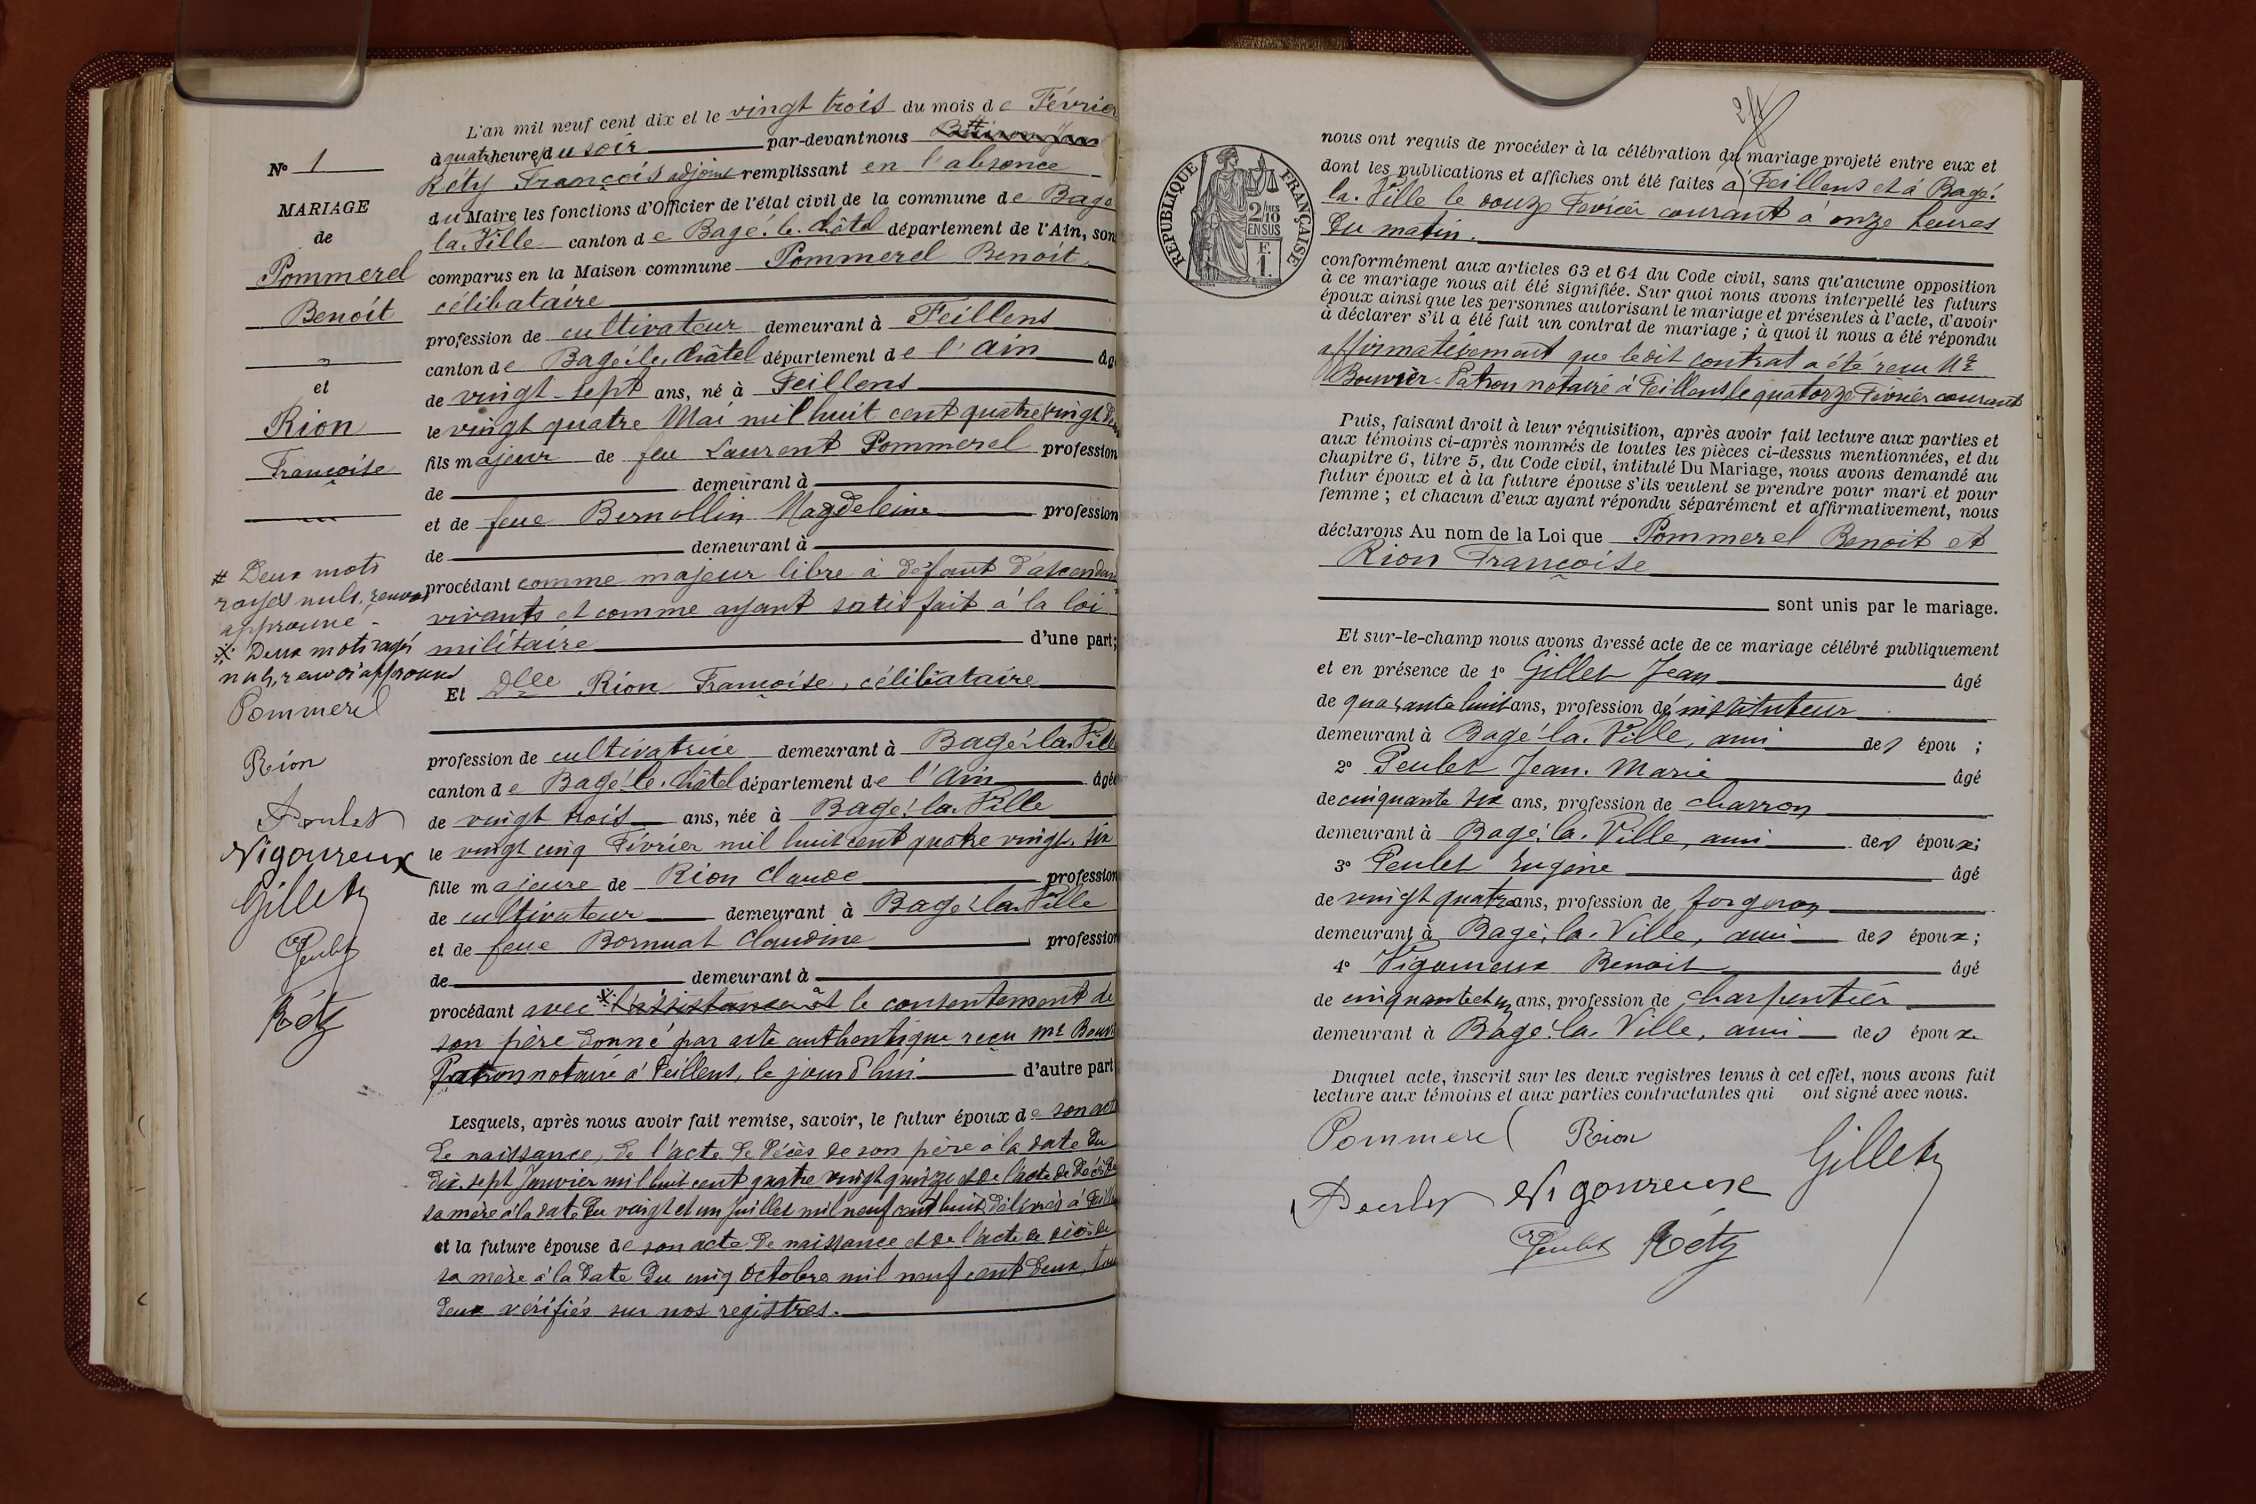 L'an mil neuf cent dix et le vingt trois du mois de Février
à quatre heures du soir par-devant nous
Réty François adjoint remplissant en l'absence
du Maire les fonctions d'Officier de l'état civil de la commune de Bagé
la-Ville canton de Bagé-le-Châtel département de l'Ain, son
comparus en la Maison commune Pommerel Benoit
célibataire
profession de cultivateur demeurant à Feillens
canton de Bagé-le-Châtel département de l'Ain âgé
de vingt-sept ans, né à Feillens
le vingt quatre Mai mil huit cent quatre vingt deux
fils majeur de feu Laurent Pommerel profession
de demeurant à
et de feue Bernollin Magdeleine profession
de demeurant à
procédant comme majeur libre à défaut d'ascendants
vivants et comme ayant satisfait à la loi
militaire d'une part;
Et Dlle Rion Françoise, célibataire
profession de cultivatrice demeurant à Bagé-la-Ville
canton de Bagé-le-Châtel département de l'Ain âgée
de vingt trois ans, née à Bagé-la-Ville
le vingt cinq Février mil huit cent quatre vingt-six
fille majeure de Rion Claude profession
de cultivateur demeurant à Bagé-la-Ville
et de feue Bornuat Claudine profession
de demeurant à
procédant avec l'assistance et le consentement de
son père donné par acte authentique reçu Me Bouvier
Patron notaire à Feillens, le jourd'hui d'autre part
Lesquels, après nous avoir fait remise, savoir, le futur époux de son acte
de naissance, de l'acte de décès de son père à la date du
dix-sept Janvier mil huit cent quatre vingt quinze et de l'acte de décès de
sa mère à la date du vingt et un Juillet mil neuf cent huit délivrés à Feillens
et la future épouse de son acte de naissance et de l'acte de décès de
sa mère à la date du cinq Octobre mil neuf cent deux, tous
deux vérifiés sur nos registres.
No 1
MARIAGE
de
Pommerel
Benoit
et
Rion
Françoise
# Deux mots
rayés nuls, renvoi
approuvé -
Deux mots rayés
nuls, renvoi approuvé
Pommerel
Rion
Poulet
Vigoureux
Gillet
Peulet
Réty
2/4
RÉPUBLIQUE FRANÇAISE
2/10
EN SUS
F
1.
nous ont requis de procéder à la célébration du mariage projeté entre eux et
dont les publications et affiches ont été faites à Feillens et à Bagé-
la-Ville le douze Février courant à onze heures
du matin.
conformément aux articles 63 et 64 du Code civil, sans qu'aucune opposition
à ce mariage nous ait été signifiée. Sur quoi nous avons interpellé les futurs
époux ainsi que les personnes autorisant le mariage et présentes à l'acte, d'avoir
à déclarer s'il a été fait un contrat de mariage; à quoi il nous a été répondu
affirmativement que ledit contrat a été reçu Me
Bouvier-Patron notaire à Feillens le quatorze Février courant
Puis, faisant droit à leur réquisition, après avoir fait lecture aux parties et
aux témoins ci-après nommés de toutes les pièces ci-dessus mentionnées, et du
chapitre 6, titre 5, du Code civil, intitulé Du Mariage, nous avons demandé au
futur époux et à la future épouse s'ils veulent se prendre pour mari et pour
femme; et chacun d'eux ayant répondu séparément et affirmativement, nous
déclarons Au nom de la Loi que Pommerel Benoit et
Rion Françoise
sont unis par le mariage.
Et sur-le-champ nous avons dressé acte de ce mariage célébré publiquement
et en présence de 1o Gillet Jean âgé
de quarante huit ans, profession de instituteur
demeurant à Bagé-la-Ville, ami des épou ;
2o Peulet Jean-Marie âgé
de cinquante six ans, profession de charron
demeurant à Bagé-la-Ville, ami des époux;
3o Peulet Eugène âgé
de vingt quatre ans, profession de forgeron
demeurant à Bagé-la-Ville, ami des époux;
4o Vigoureux Benoit âgé
de cinquante et un ans, profession de charpentier
demeurant à Bagé-la-Ville, ami des époux.
Duquel acte, inscrit sur les deux registres tenus à cet effet, nous avons fait
lecture aux témoins et aux parties contractantes qui ont signé avec nous.
Pommerel Rion Gillet
Poulet Vigoureux
Peulet Réty